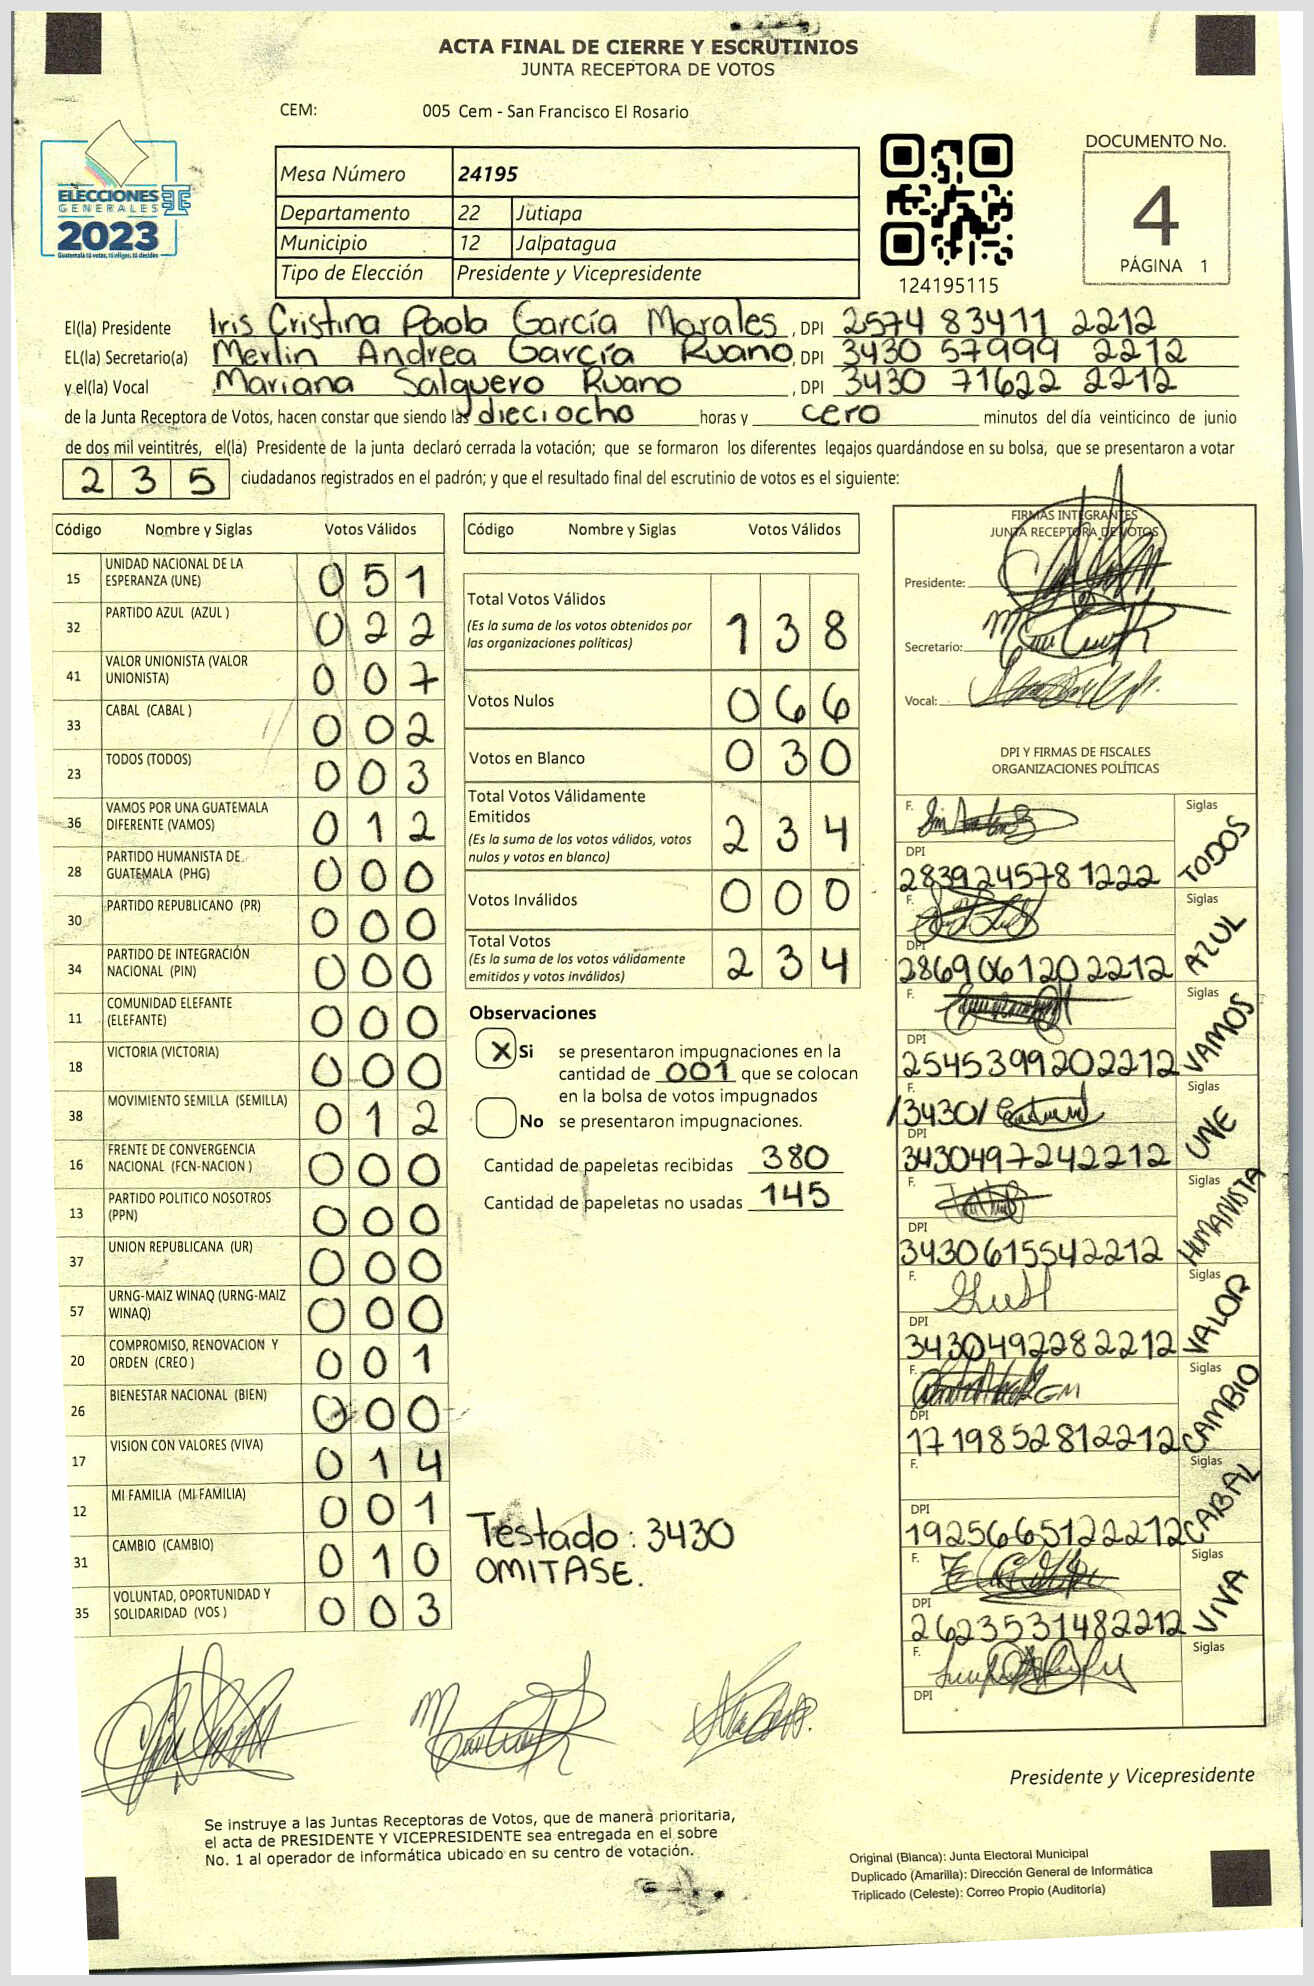 ACTA FINAL DE CIERRE Y ESCRUTINIOS
JUNTA RECEPTORA DE VOTOS
CEM: 005 Cem - San Francisco El Rosario
ELECCIONES
GENERALES
2023
Guatemala tú votas, tú eliges, tú decides
Mesa Número 24195
Departamento 22 Jutiapa
Municipio 12 Jalpatagua
Tipo de Elección Presidente y Vicepresidente
124195115
DOCUMENTO No.
4
PÁGINA 1
El(la) Presidente Iris Cristina Paola García Morales, DPI 2574 83411 2212
EL(la) Secretario(a) Merlin Andrea García Ruano, DPI 3430 57999 2212
y el(la) Vocal Mariana Salguero Ruano, DPI 3430 71622 2212
de la Junta Receptora de Votos, hacen constar que siendo las dieciocho horas y cero minutos del día veinticinco de junio
de dos mil veintitrés, el(la) Presidente de la junta declaró cerrada la votación; que se formaron los diferentes legajos guardándose en su bolsa, que se presentaron a votar
235 ciudadanos registrados en el padrón; y que el resultado final del escrutinio de votos es el siguiente:
Código Nombre y Siglas Votos Válidos
15 UNIDAD NACIONAL DE LA ESPERANZA (UNE) 051
32 PARTIDO AZUL (AZUL ) 022
41 VALOR UNIONISTA (VALOR UNIONISTA) 007
33 CABAL (CABAL ) 002
23 TODOS (TODOS) 003
36 VAMOS POR UNA GUATEMALA DIFERENTE (VAMOS) 012
28 PARTIDO HUMANISTA DE GUATEMALA (PHG) 000
30 PARTIDO REPUBLICANO (PR) 000
34 PARTIDO DE INTEGRACIÓN NACIONAL (PIN) 000
11 COMUNIDAD ELEFANTE (ELEFANTE) 000
18 VICTORIA (VICTORIA) 000
38 MOVIMIENTO SEMILLA (SEMILLA) 012
16 FRENTE DE CONVERGENCIA NACIONAL (FCN-NACION ) 000
13 PARTIDO POLITICO NOSOTROS (PPN) 000
37 UNION REPUBLICANA (UR) 000
57 URNG-MAIZ WINAQ (URNG-MAIZ WINAQ) 000
20 COMPROMISO, RENOVACION Y ORDEN (CREO ) 001
26 BIENESTAR NACIONAL (BIEN) 000
17 VISION CON VALORES (VIVA) 014
12 MI FAMILIA (MI FAMILIA) 001
31 CAMBIO (CAMBIO) 010
35 VOLUNTAD, OPORTUNIDAD Y SOLIDARIDAD (VOS ) 003
Código Nombre y Siglas Votos Válidos
Total Votos Válidos 138
(Es la suma de los votos obtenidos por
las organizaciones políticas)
Votos Nulos 066
Votos en Blanco 030
Total Votos Válidamente
Emitidos 234
(Es la suma de los votos válidos, votos
nulos y votos en blanco)
Votos Inválidos 000
Total Votos 234
(Es la suma de los votos válidamente
emitidos y votos inválidos)
Observaciones
X Si se presentaron impugnaciones en la
cantidad de 001 que se colocan
en la bolsa de votos impugnados
No se presentaron impugnaciones.
Cantidad de papeletas recibidas 380
Cantidad de papeletas no usadas 145
Testado: 3430
OMITASE.
FIRMAS INTEGRANTES
JUNTA RECEPTORA DE VOTOS
Presidente:
Secretario:
Vocal:
DPI Y FIRMAS DE FISCALES
ORGANIZACIONES POLÍTICAS
F. Siglas TODOS
DPI 2839245781222
F. Siglas AZUL
DPI 2869061202212
F. Siglas VAMOS
DPI 2545399202212
F. /3430/ Siglas UNE
DPI 3430497242212
F. Siglas HUMANISTA
DPI 3430615542212
F. Siglas VALOR
DPI 3430492282212
F. Siglas CAMBIO
DPI 1719852812212
F. Siglas CABAL
DPI 1925665122212
F. Siglas VIVA
DPI 2623531482212
F. Siglas
DPI
Presidente y Vicepresidente
Se instruye a las Juntas Receptoras de Votos, que de manera prioritaria,
el acta de PRESIDENTE Y VICEPRESIDENTE sea entregada en el sobre
No. 1 al operador de informática ubicado en su centro de votación.
Original (Blanca): Junta Electoral Municipal
Duplicado (Amarilla): Dirección General de Informática
Triplicado (Celeste): Correo Propio (Auditoría)